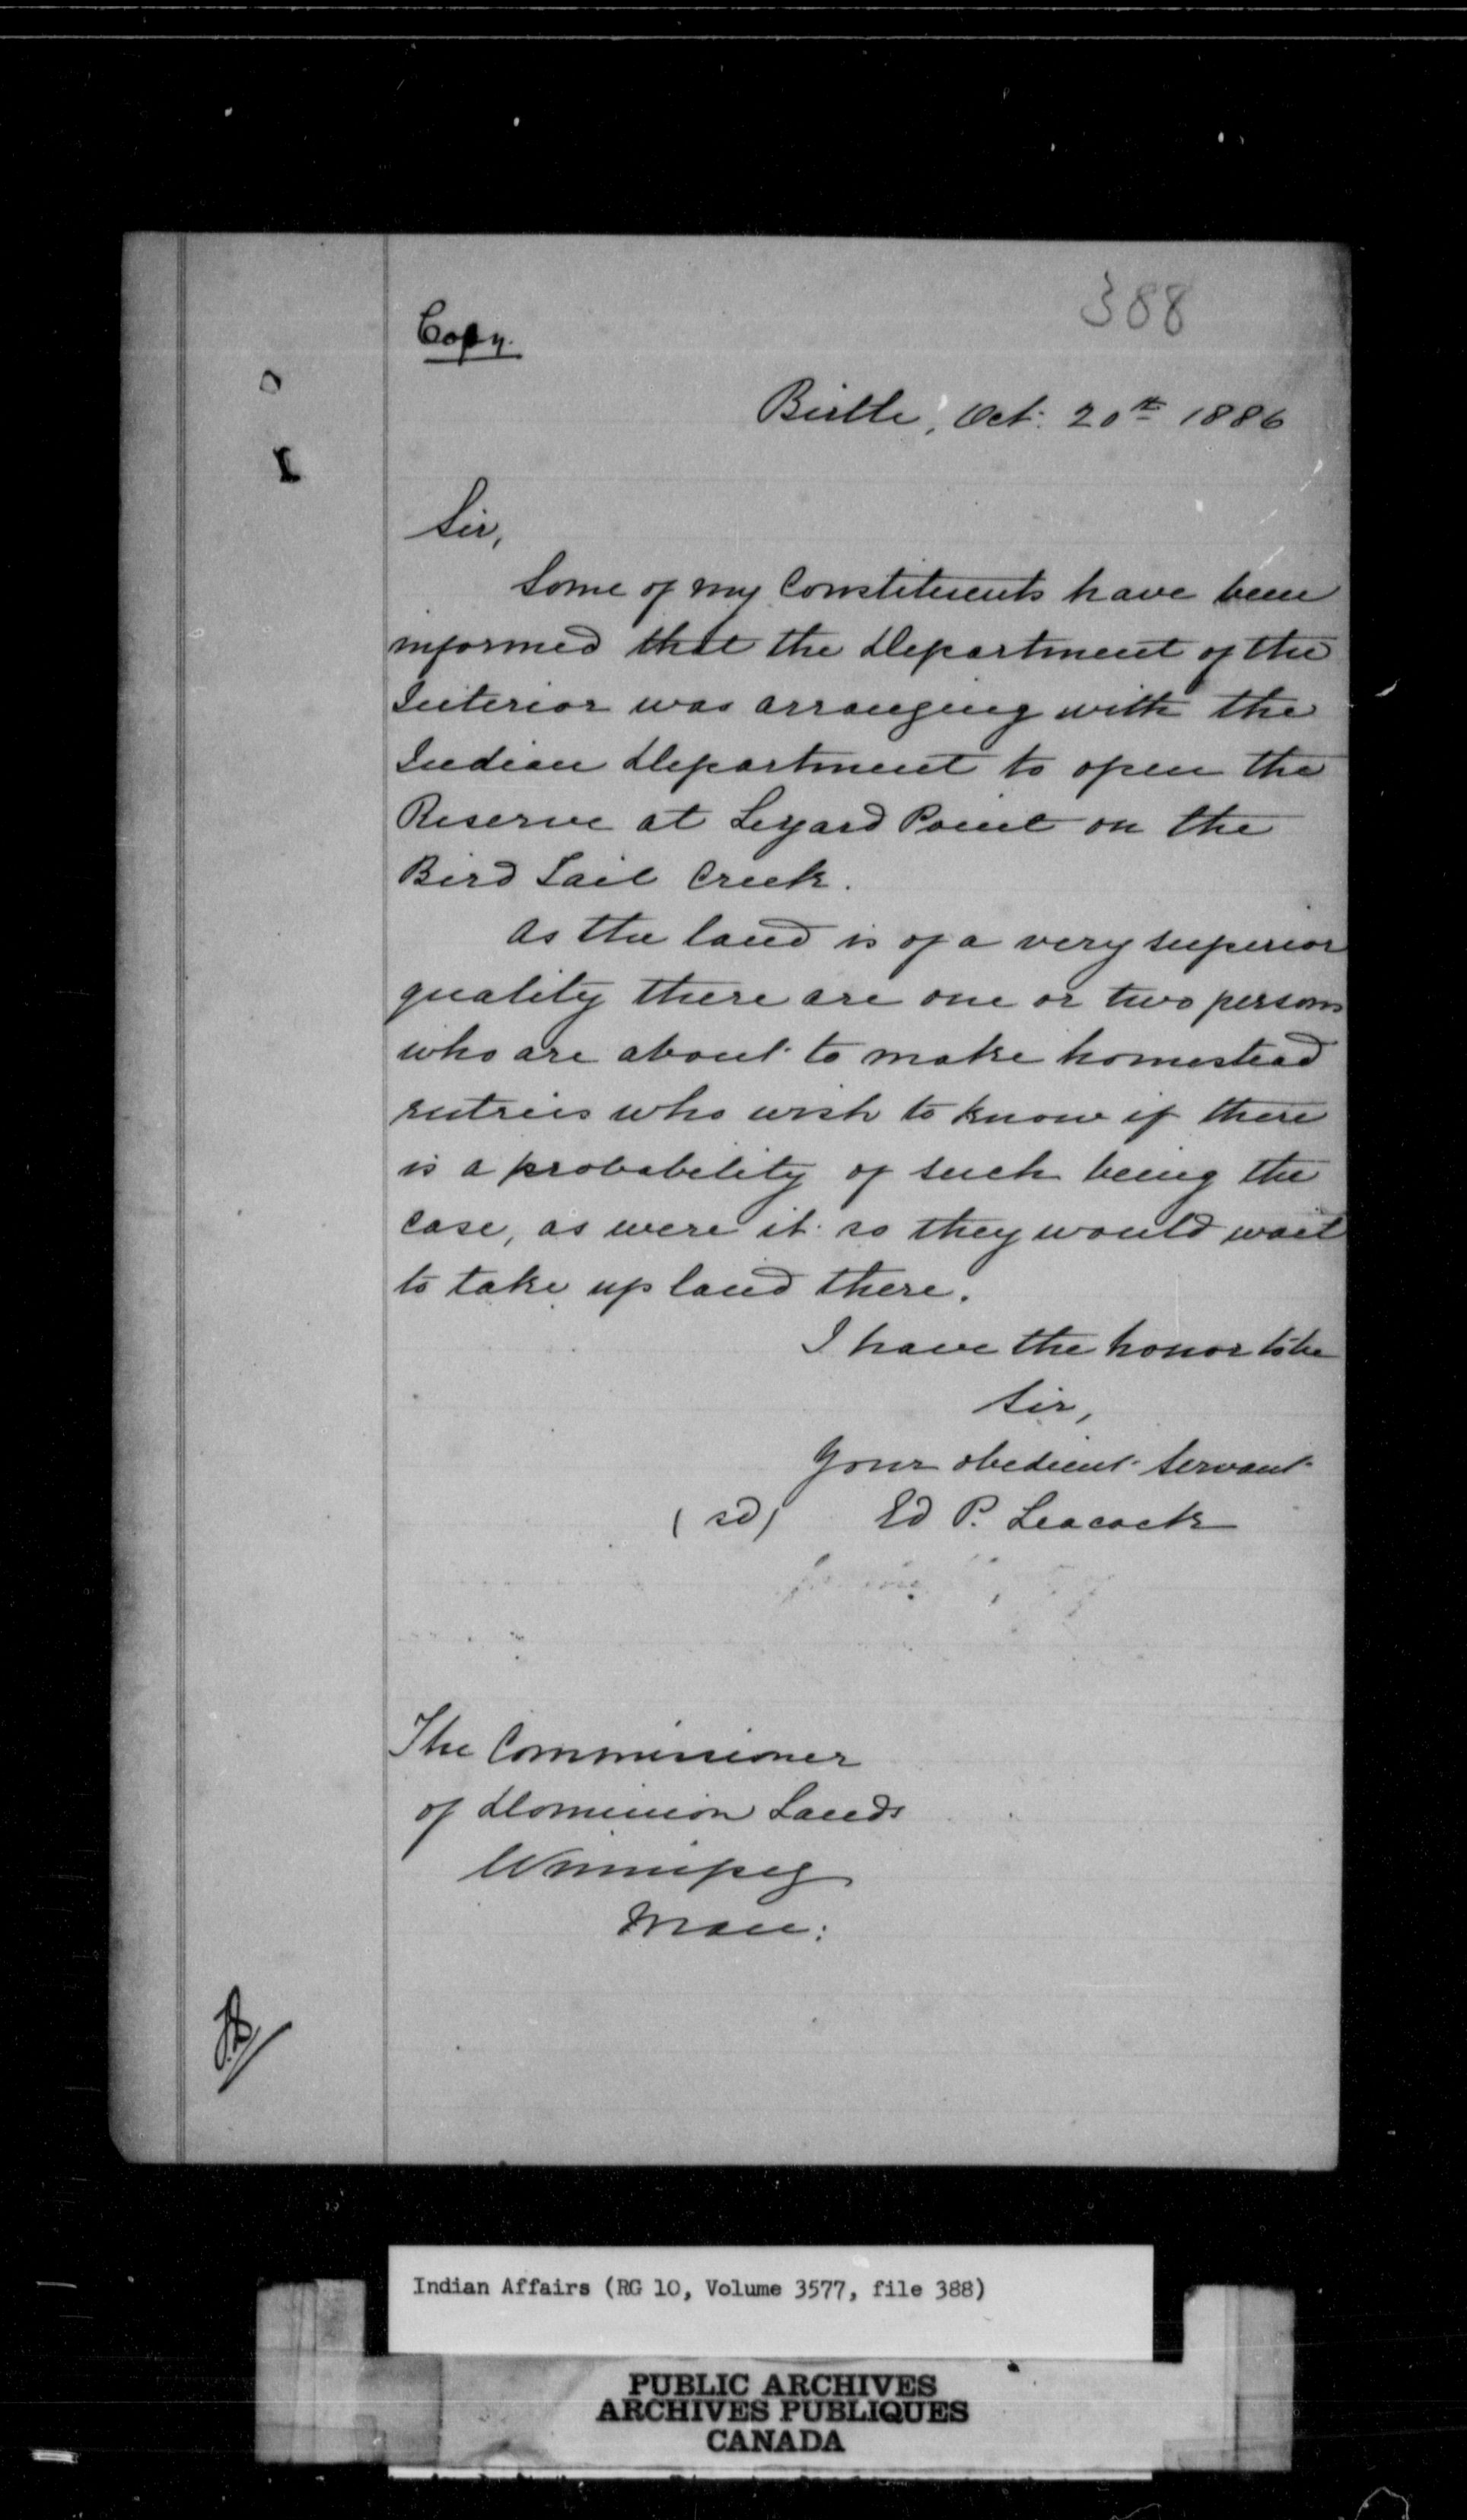 388
Copy.
Birtle, Oct. 20th 1886
Sir,
Some of my Constituents have been
informed that the Department of the
Interior was arranging with the
Indian Department to open the
Reserve at Lizard Point on the
Bird Tail Creek.
As the land is of a very superior
quality there are one or two persons
who are about to make homestead
entries who wish to know if there
is a probability of such being the
case, as were it so they would wait
to take up land there.
I have the honor to be
Sir,
Your obedient Servant
(sd) Ed P. Leacock
The Commissioner
of Dominion Lands
Winnipeg
Man:
Indian Affairs (RG 10, Volume 3577, file 388)
PUBLIC ARCHIVES
ARCHIVES PUBLIQUES
CANADA